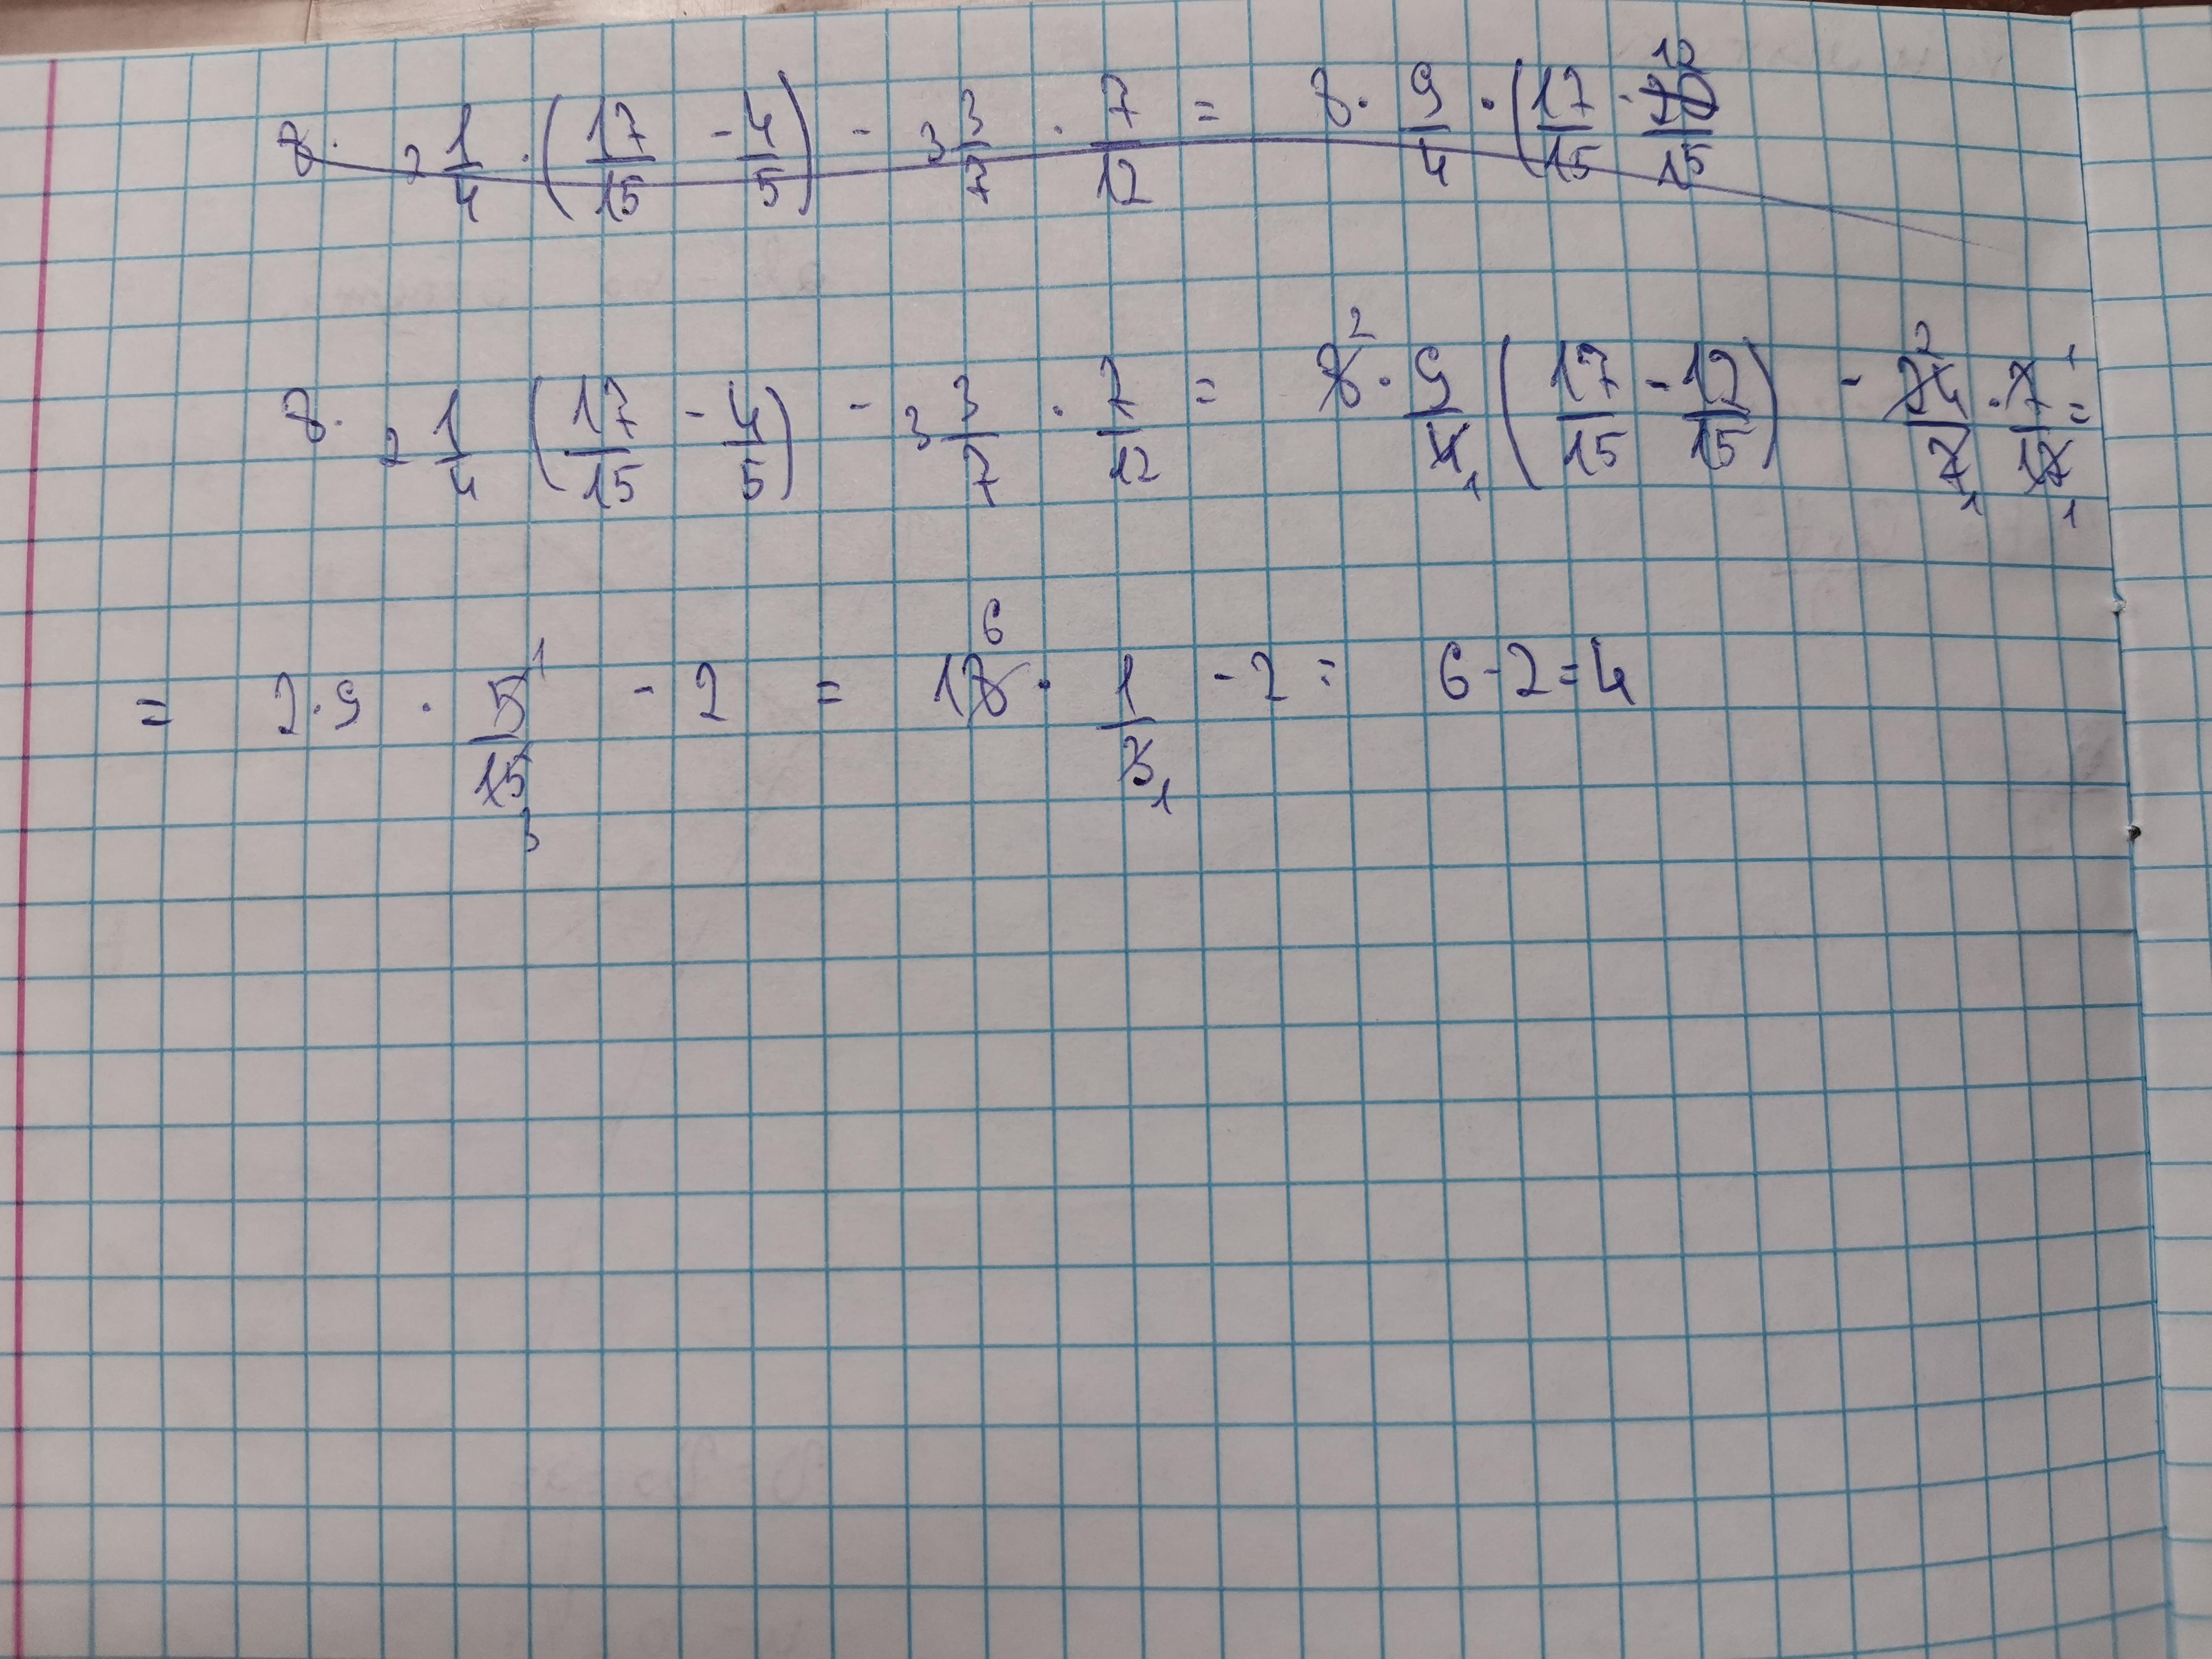 8 · 2 1/4 · (17/15 - 4/5) - 3 3/7 · 7/12 = 8 · 9/4 · (17/15 - 12/15
8 · 2 1/4 (17/15 - 4/5) - 3 3/7 · 7/12 = 8 2 · 9/4 1 (17/15 - 12/15) - 24 2/7 1 · 7 1/12 1 =
= 2 · 9 · 5 1/15 3 - 2 = 18 6 · 1/3 1 - 2 = 6 - 2 = 4